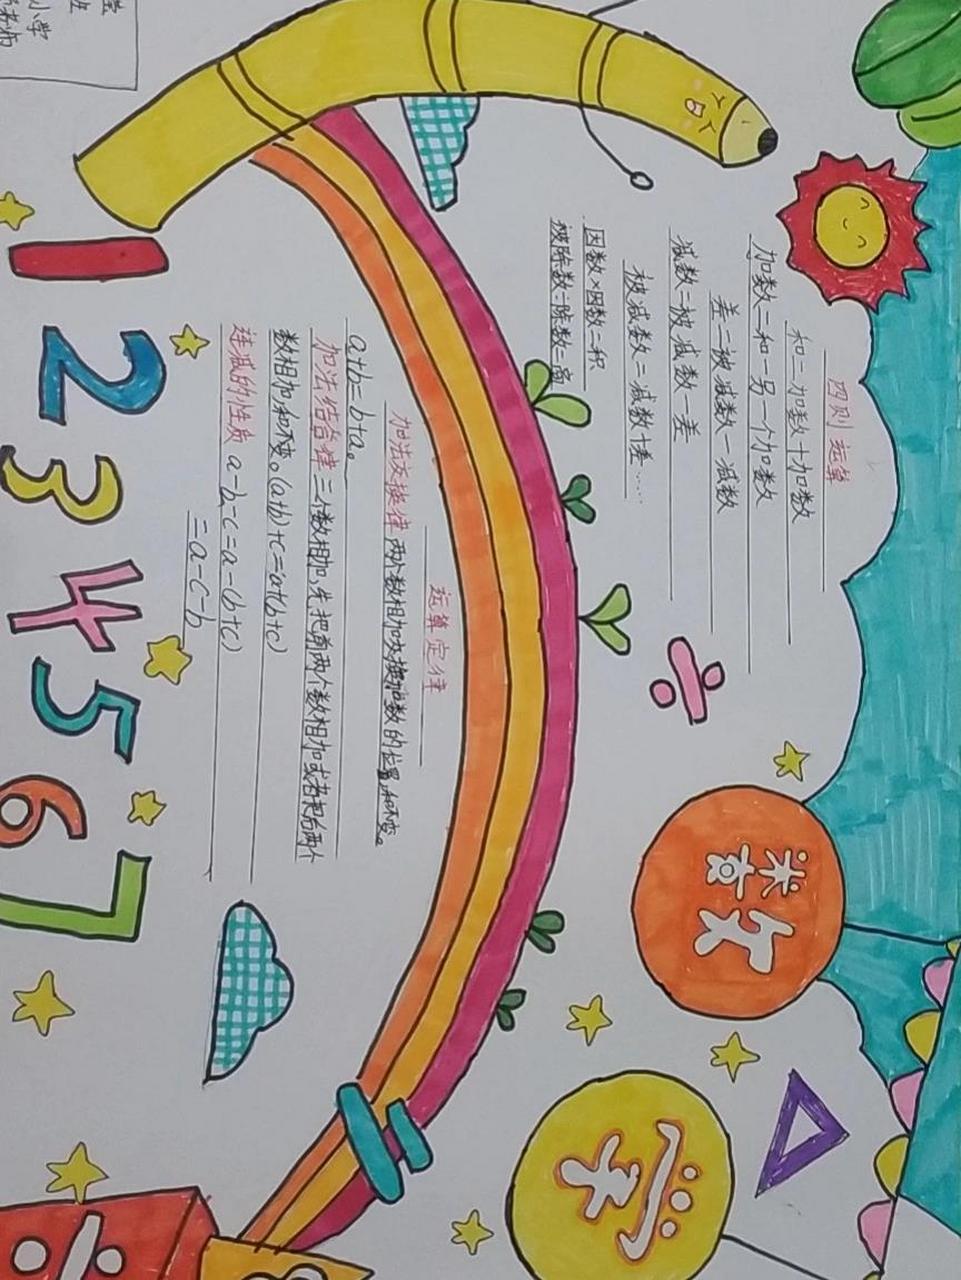 数
学
四则运算
和=加数+加数
加数=和-另一个加数
差=被减数-减数
减数=被减数-差
被减数=减数+差……
因数×因数=积
被除数÷除数=商
运算定律
加法交换律 两个数相加交换加数的位置,和不变。
a+b=b+a。
加法结合律 三个数相加,先把前两个数相加或者把后两个
数相加和不变。(a+b)+c=a+(b+c)
连减的性质 a-b-c=a-(b+c)
=a-c-b
1234567
÷
÷
小学
班